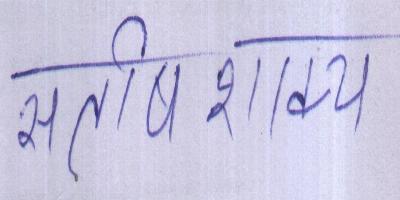 सतीष शाक्य